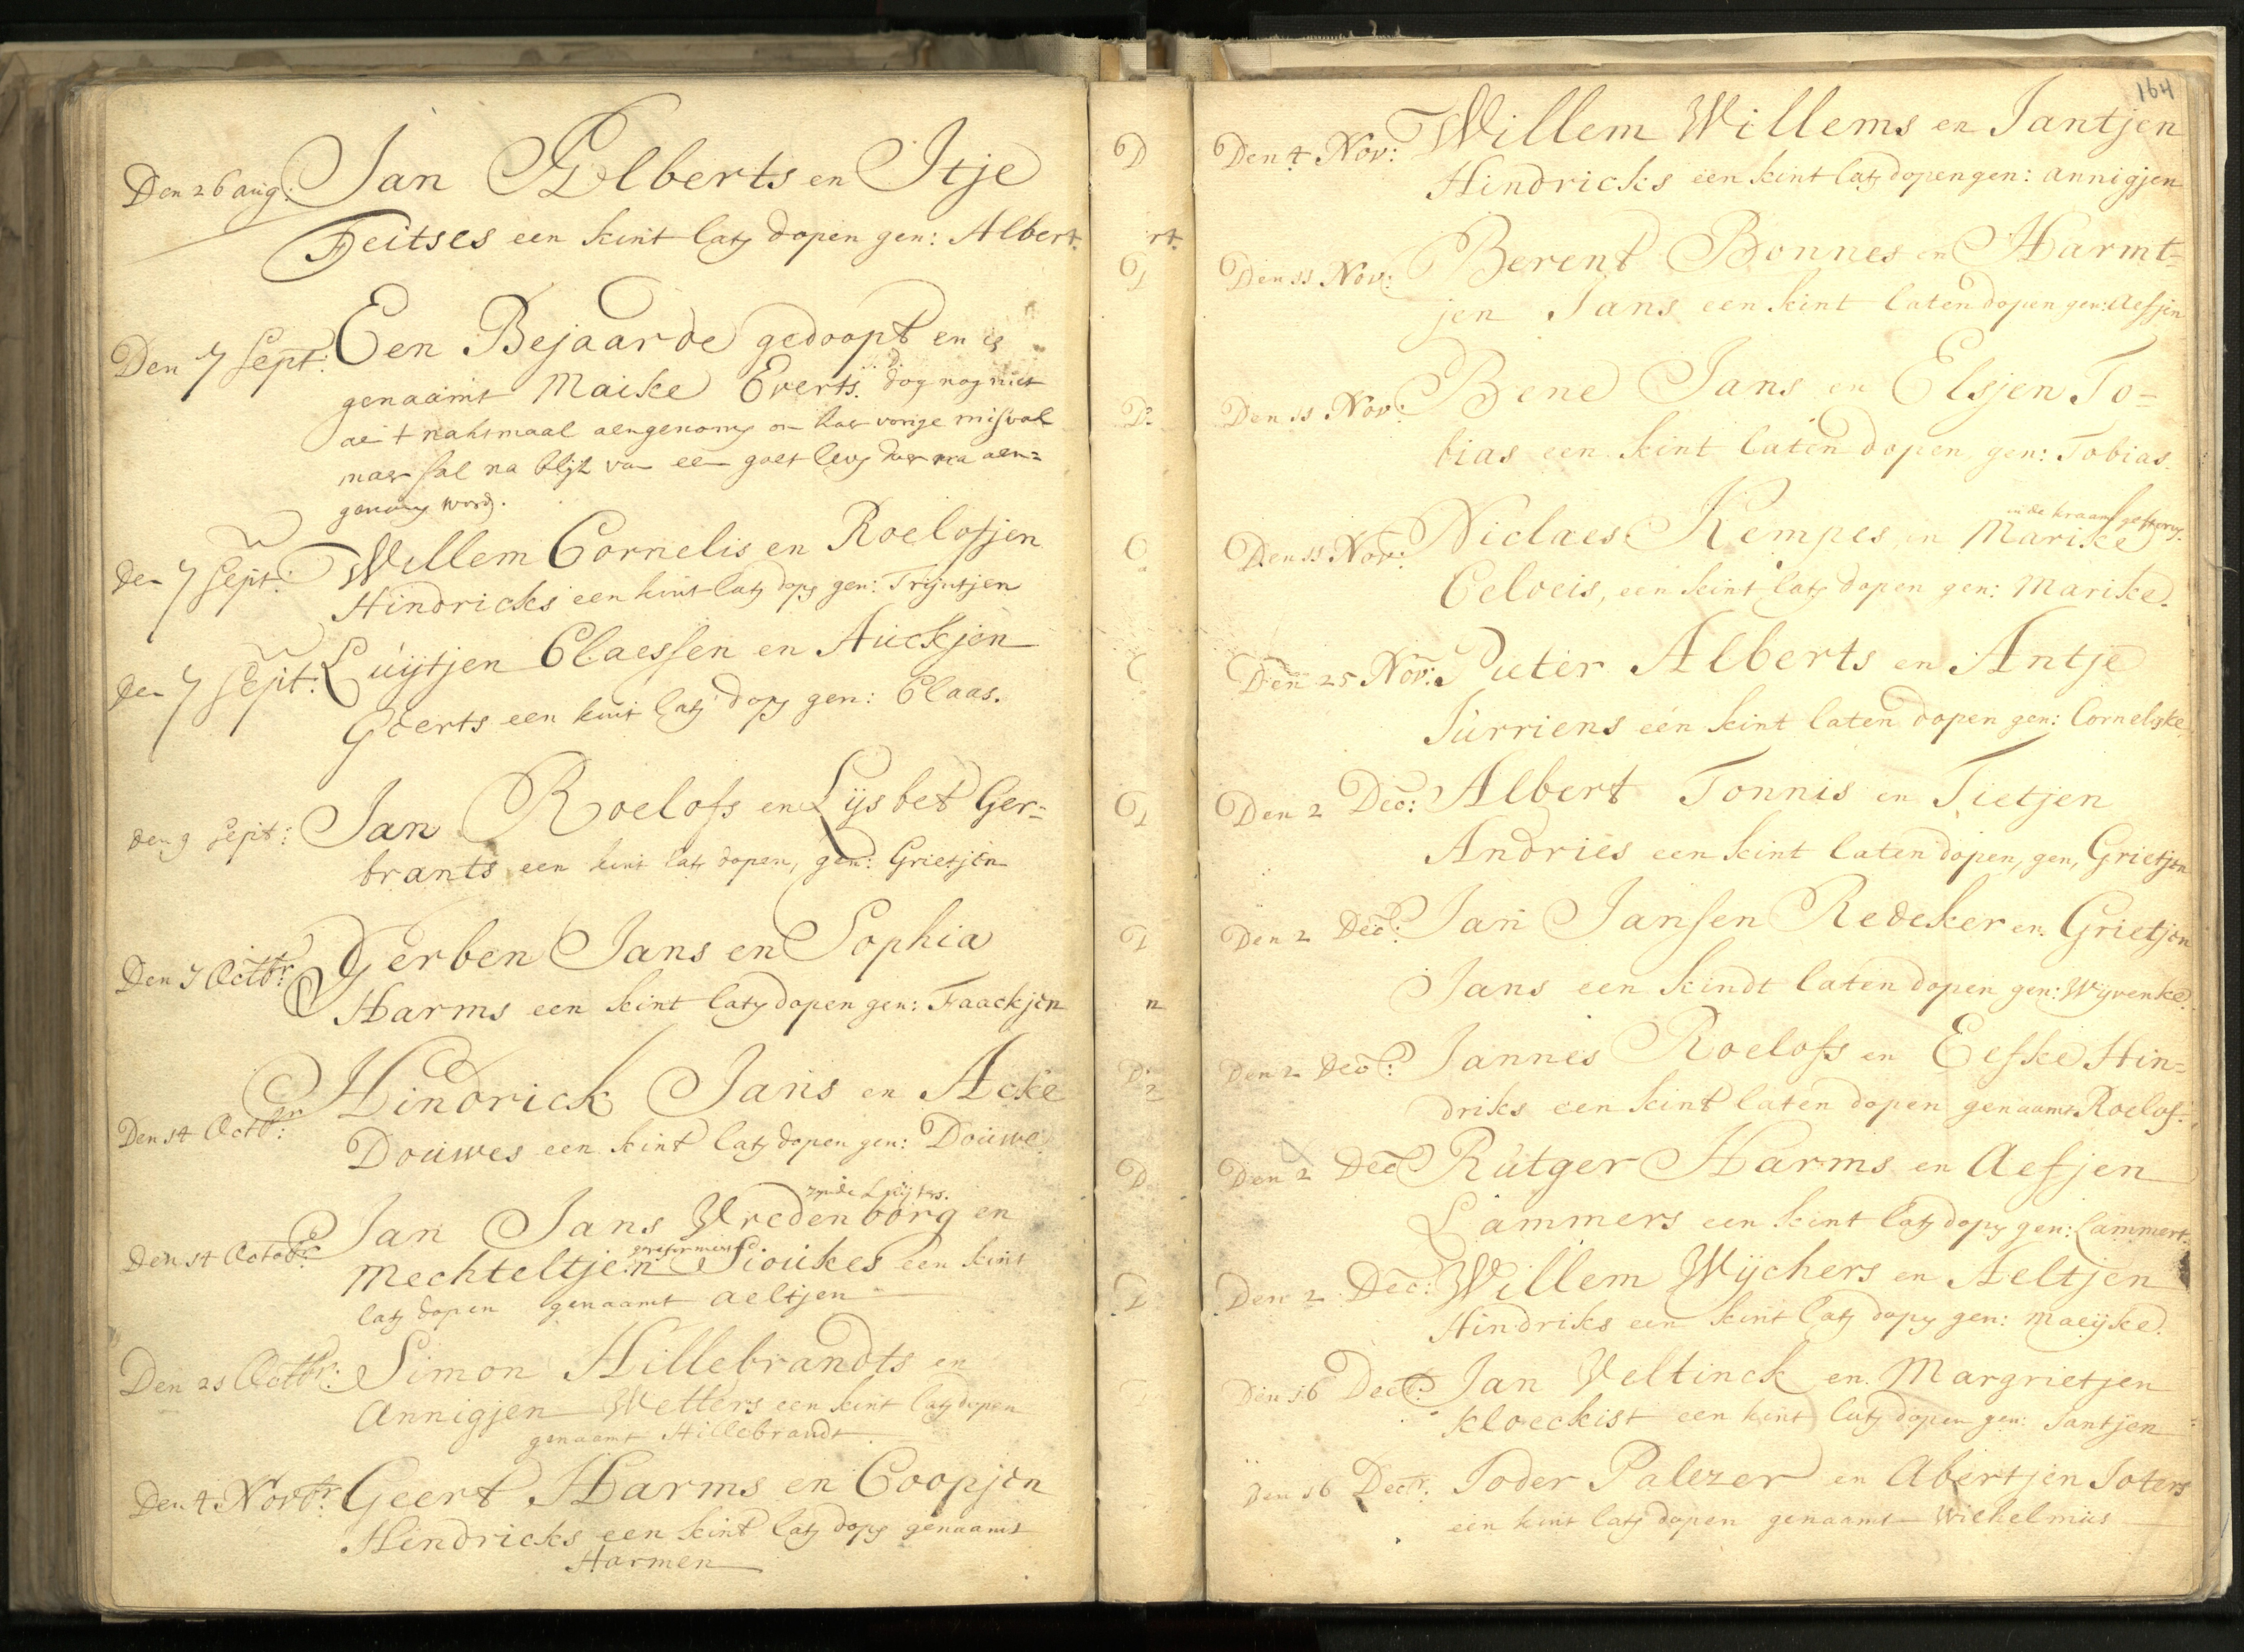 Den 26 aug: Jan Elberts en Itje
Feitses een kint latē dopen gen: Albert.
Den 7 Sept: Een Bejaarde gedoopt en is
genaamt Maike Everts. dog nog niet
nahtmaal aengenomē om haer vorige misval
maer sal na blijk van een goet levē daer na aen=
genomē wordē.
den 7 Sept: Willem Cornelis en Roelofjen
Hindricks een kint latē dopē gen: Trijntjen
den 7 Sept: Luijtjen Claessen en Auckjen
Geerts een kint latē dopē gen: Claas.
den 9 Sept: Jan Roelofs en Lijsbet Ger=
brants een kint latē dopen, gen: Grietjen
Den 7 Octbr: Gerben Jans en Sophia
Harms een kint latē dopen gen: Faackjen
Den 14 Octbr: Hindrick Jans en Acke
Douwes een kint latē dopen gen: Douwe
Den 14 Octobr: Jan Jans Vredenborg en
gereformeerd.
Mechteltjen Sioukes een kint
latē dopen genaamt aeltjen
Den 21 Octbr: Simon Hillebrandts en
Annigjen Wetters een kint latē dopen
genaamt Hillebrandt.
Den 4 Novbr: Geert Harms en Coopjen
Hindricks een kint latē dopē genaamt
Harmen
164
Den 4 Nov: Willem Willems en Jantjen
Hindricks een kint latē dopen gen: annigjen
Den 11 Nov: Berent Bonnes en Harmt=
jen Jans een kint laten dopen gen: Aefjen
Den 11 Nov: Bene Jans en Elsjen To=
bias een kint laten dopen gen: Tobias.
in de kraam gestorvē.
Den 11 Nov: Niclaes Kempes en Marike
Celoeis, een kint latē dopen gen: Marike.
Den 25 Nov: Pieter Alberts en Antje
Jurriens een kint laten dopen gen: Cornelske
Den 2 Dec: Albert Tonnis en Tietjen
Andries een kint laten dopen, gen, Grietjen
Den 2 Dec: Jan Jansen Redeker en Grietjen
Jans een kindt laten dopen gen: Wijvenke.
Den 2 Dec: Jannes Roelofs en Eefke Hin=
driks een kint laten dopen genaamt Roelof.
Den 2 Dec Rutger Harms en Aefjen
Lammers een kint latē dopē gen: Lammert.
Den 2 Dec: Willem Wijchers en Aeltjen
Hindriks een kint latē dopē gen: Maeijke.
Den 16 Dec: Jan Veltinck en Margrietjen
Kloeckist een kint latē dopen gen: Jantjen
Den 16 Decr: Joder Palezer en Abertjen Joters
een kint latē dopen genaamt Wilhelmus